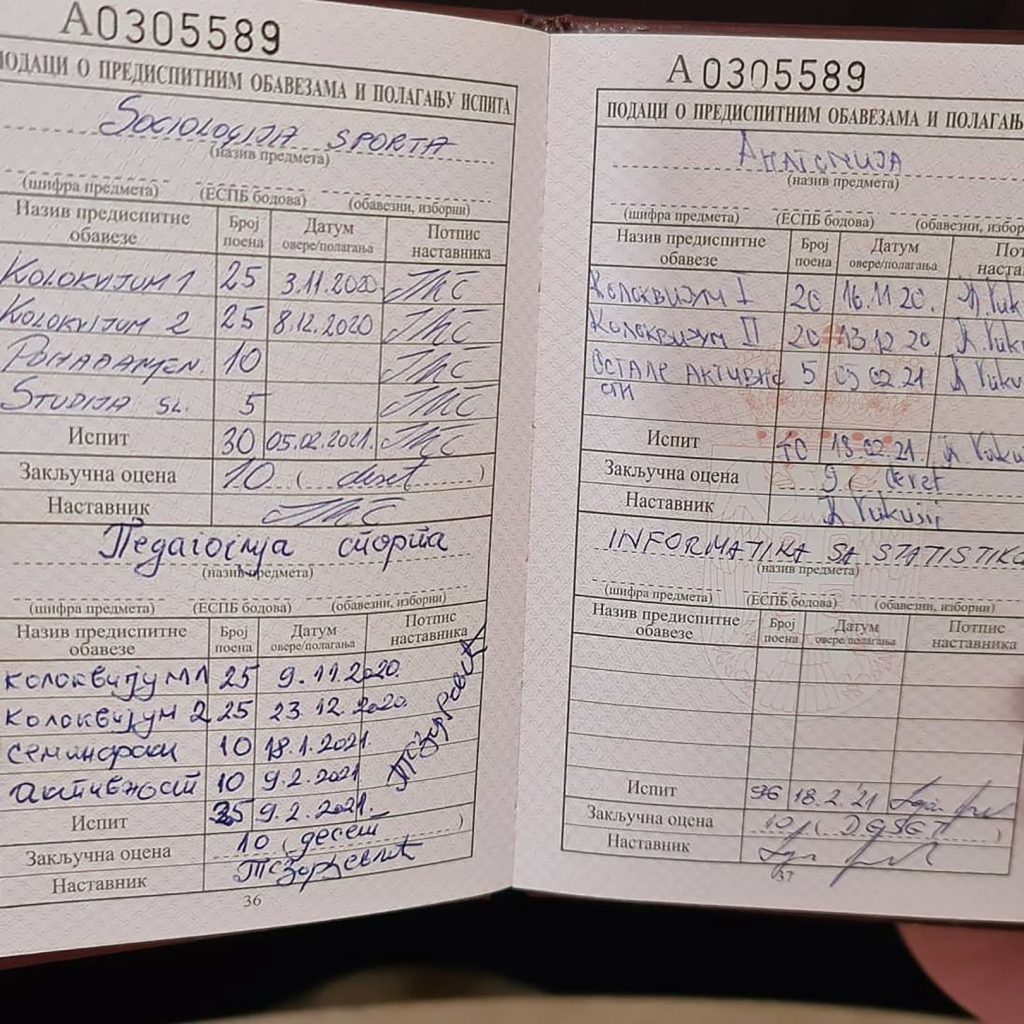 А0305589
ПОДАЦИ О ПРЕДИСПИТНИМ ОБАВЕЗАМА И ПОЛАГАЊУ ИСПИТА
SOCIOLOGIJA SPORTA
(назив предмета)
(шифра предмета) (ЕСПБ бодова) (обавезни, изборни)
Назив предиспитне обавезе Број поена Датум овере/полагања Потпис наставника
KOLOKVIJUM 1 25 3.11.2020
KOLOKVIJUM 2 25 8.12.2020
10
STUDIJA SL. 5
Испит 30 05.02.2021.
Закључна оцена 10 ( deset )
Наставник
Педагогија спорта
(назив предмета)
(шифра предмета) (ЕСПБ бодова) (обавезни, изборни)
Назив предиспитне обавезе Број поена Датум овере/полагања Потпис наставника
колоквијум 1 25 9.11.2020.
колоквијум 2 25 23.12.2020.
семинарски 10 18.1.2021.
активност 10 9.2.2021
Испит 35 9.2.2021.
Закључна оцена 10 (десет )
Наставник
36
А0305589
ПОДАЦИ О ПРЕДИСПИТНИМ ОБАВЕЗАМА И ПОЛАГАЊ
Анатомија
(назив предмета)
(шифра предмета) (ЕСПБ бодова) (обавезни, избор
Назив предиспитне обавезе Број поена Датум овере/полагања Пот наста
Колоквизум I 20 16.11 20.
Колоквизум II 20 13 12 20.
ОСТАЛЕ АКТИВНО 5 05 02 21
СТИ
Испит 40 18.02.21.
Закључна оцена 9 ( devet
Наставник
INFORMATIKA SA STATISTIKO
(назив предмета)
(шифра предмета) (ЕСПБ бодова) (обавезни, изборни)
Назив предиспитне обавезе Број поена Датум овере/полагања Потпис наставника
Испит 96 18.2.21
Закључна оцена 10 ( DESET )
Наставник
37